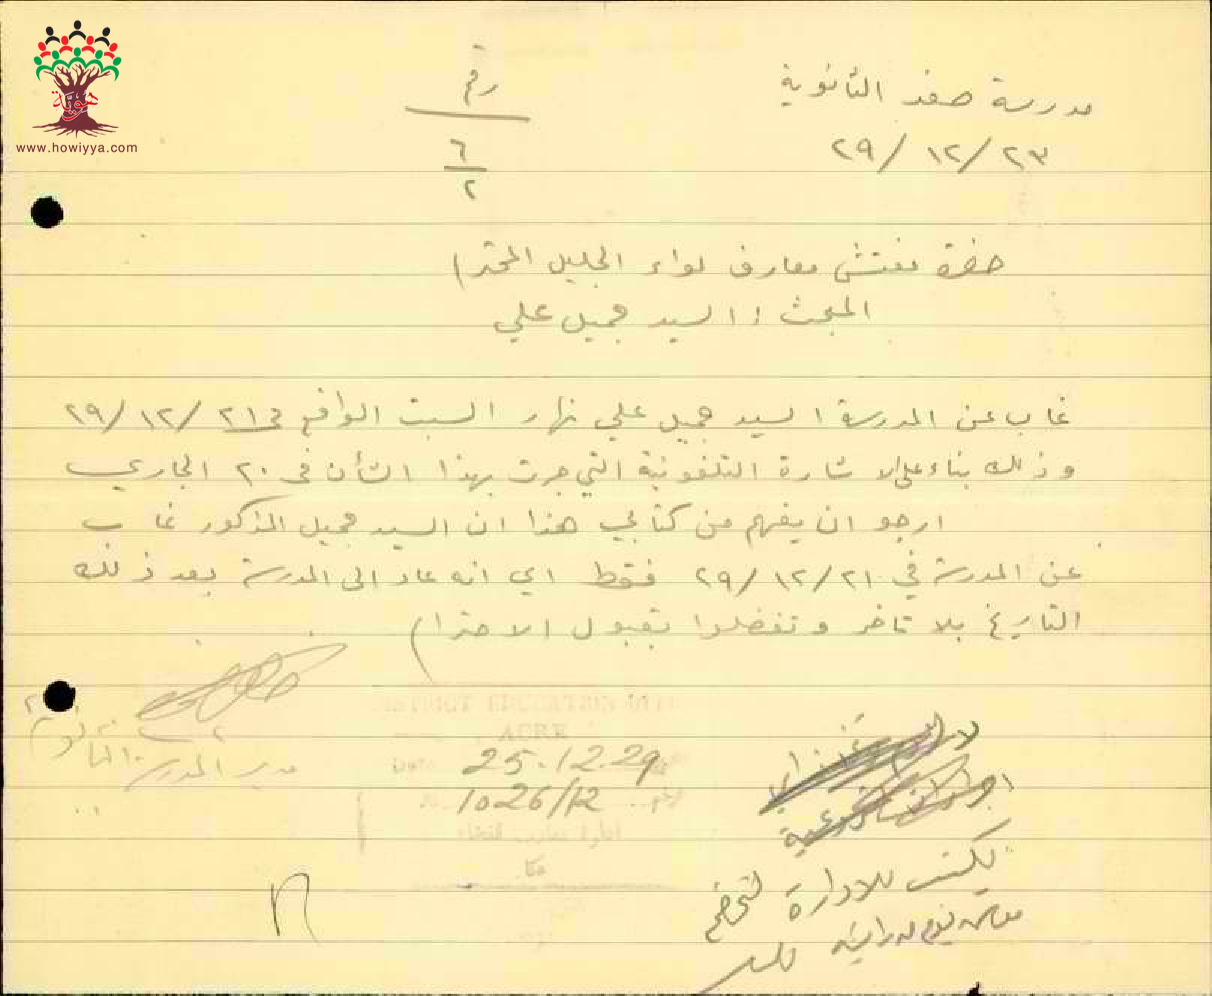 هوية
www.howiyya.com
مدرسة صفد الثانوية
رقم
٢٩/ ١٢/ ٢٣
٦
٢
حضرة مفتش معارف لواء الجليل المحترم
المبحث : السيد جميل علي
غاب عن المدرسة السيد جميل علي نهار السبت الواقع في ٢١/ ١٢/ ٢٩
وذلك بناء على الاشارة التلفونية التي جرت بهذا الشأن في ٢٠ الجاري
ارجو ان يفهم من كتابي هذا ان السيد جميل المذكور غاب
عن المدرسة في ٢١/ ١٢/ ٢٩ فقط اي انه عاد الى المدرسة بعد ذلك
التاريخ بلا تاخر وتفضلوا بقبول الاحترام
مدير المدرسة الثانوية
DISTRICT EDUCATION OFFICE
ACRE
Date 25.12.29
No. 1026/12
ادارة معارف القضاء
عكا
يكتب للادارة لتخصم
معاش يوم